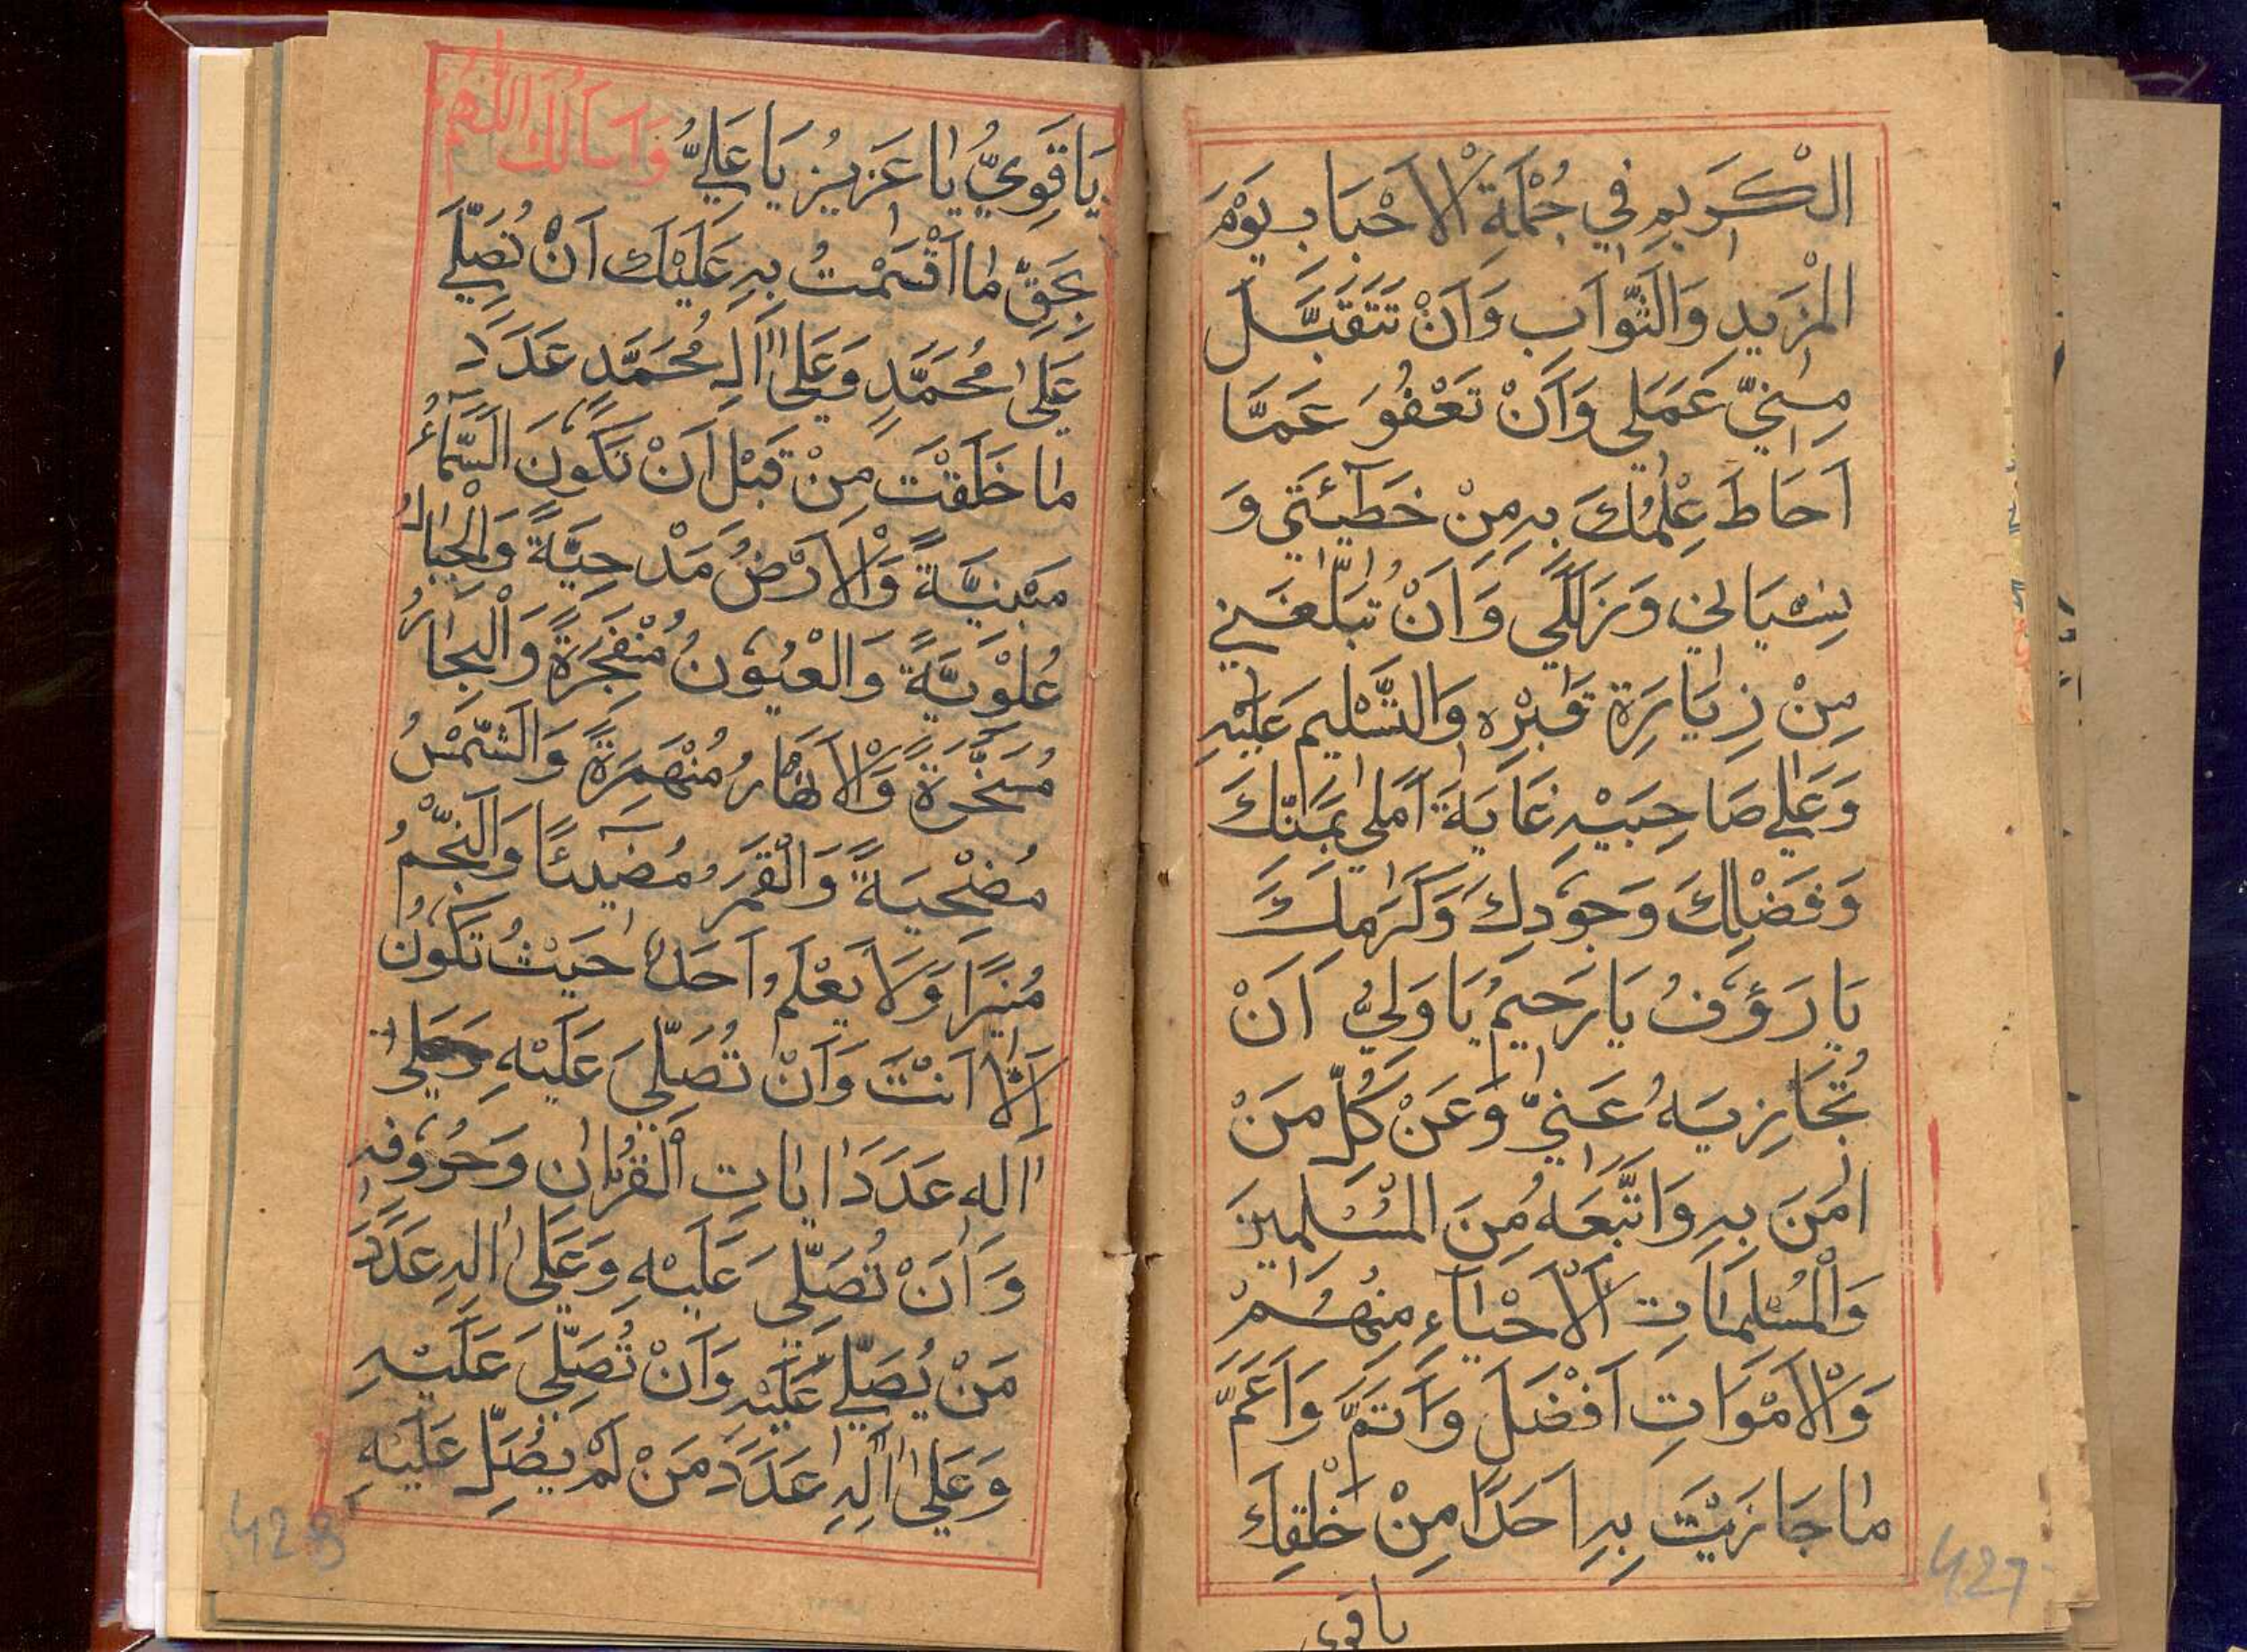 الْكَرِيمِ فِي جُمْلَةِ الْاَحْبَابِ يَوْمَ
الْمَزِيدِ وَالثَّوَابِ وَاَنْ تَتَقَبَّلَ
مِنِّي عَمَلِي وَاَنْ تَعْفُوَ عَمَّا
اَحَاطَ عِلْمُكَ بِهِ مِنْ خَطِيْئَتِي وَ
نِسْيَانِي وَزَلَلِي وَاَنْ تُبَلِّغَنِي
مِنْ زِيَارَةِ قَبْرِهِ وَالتَّسْلِيمِ عَلَيْهِ
وَعَلٰي صَاحِبَيْهِ غَايَةَ اَمَلِي بِمَنِّكَ
وَفَضْلِكَ وَجُودِكَ وَكَرَمِكَ
يَا رَؤُفُ يَا رَحِيمُ يَا وَلِيُّ اَنْ
تُجَازِيَهُ عَنِّي وَعَنْ كُلِّ مَنْ
اٰمَنَ بِهِ وَاتَّبَعَهُ مِنَ الْمُسْلِمِينَ
وَالْمُسْلِمَاتِ اَلْاَحْيَاءِ مِنْهُمْ
وَالْاَمْوَاتِ اَفْضَلَ وَاَتَمَّ وَاَعَمَّ
مَا جَازَيْتَ بِهِ اَحَدًا مِنْ خَلْقِكَ
يا قوى
427
يَا قَوِيُّ يَا عَزِيْزُ يَا عَلِيُّ وَاَسْاَلُكَ اللّٰهُمَّ
بِحَقِّ مَا اَقْسَمْتُ بِهِ عَلَيْكَ اَنْ تُصَلِّيَ
عَلٰى مُحَمَّدٍ وَعَلٰى اٰلِ مُحَمَّدٍ عَدَدَ
مَا خَلَقْتَ مِنْ قَبْلِ اَنْ تَكُونَ السَّمَآءُ
مَبْنِيَّةً وَالْاَرْضُ مَدْحِيَّةً وَالْجِبَالُ
عُلْوِيَّةً وَالْعُيُونُ مُنْفَجِرَةً وَالْبِحَارُ
مُسَخَّرَةً وَالْاَنْهَارُ مُنْهَمِرَةً وَالشَّمْسُ
مُضْحِيَةً وَالْقَمَرُ مُضِيْئًا وَالنَّجْمُ
مُنِيْرًا وَلَا يَعْلَمُ اَحَدٌ حَيْثُ تَكُونُ
اِلَّا اَنْتَ وَاَنْ تُصَلِّيَ عَلَيْهِ وَعَلٰى
اٰلِه عَدَدَ اٰيَاتِ الْقُرْاٰنِ وَحُرُوفِهِ
وَاَنْ تُصَلِّيَ عَلَيْهِ وَعَلٰى اٰلِهِ عَدَدَ
مَنْ يُصَلِّي عَلَيْهِ وَاَنْ تُصَلِّيَ عَلَيْهِ
وَعَلٰى اٰلِهِ عَدَدَ مَنْ لَمْ يُصَلِّ عَلَيْهِ
428